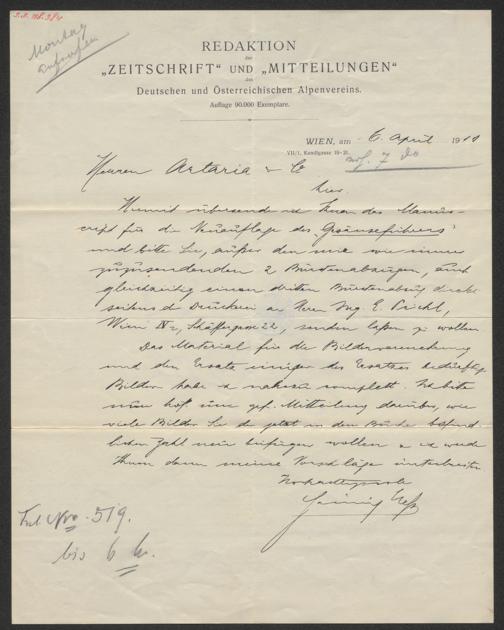 Montag
anfrufen
REDAKTION
der
„ZEITSCHRIFT“ UND „MITTEILUNGEN“
des
Deutschen und Österreichischen Alpenvereins.
Auflage 90.000 Exemplare.
WIEN, am 6. April 1910
VII/1, Kandlgasse 19-21.
Herren Artaria & Co
hier.
Hiermit übersende ich Ihnen das Manus-
cript für die Neuauflage des „Gesäuseführers“
und bitte Sie, außer den mir wie immer
zuzusendenden 2 Bürstenabzügen, auch
gleichzeitig einen dritten Bürstenabzug direkt
seitens der Druckerei an Herrn Ing. E. Pichl,
Wien IV/2, Schäffergasse 22, senden lassen zu wollen.
Das Material für die Bildervermehrung
und den Ersatz einiger des Ersatzes bedürftiger
Bilder habe ich nahezu komplett. Ich bitte
nun höfl. um gef. Mitteilung darüber, wie
viele Bilder Sie der jetzt in dem Buche befind-
lichen Zahl neu beifügen wollen & ich werde
Ihnen dann meine Vorschläge unterbreiten.
Hochachtungsvoll
Heinrich Heß
Tel. Nro. 519.
bis 6 Uhr.